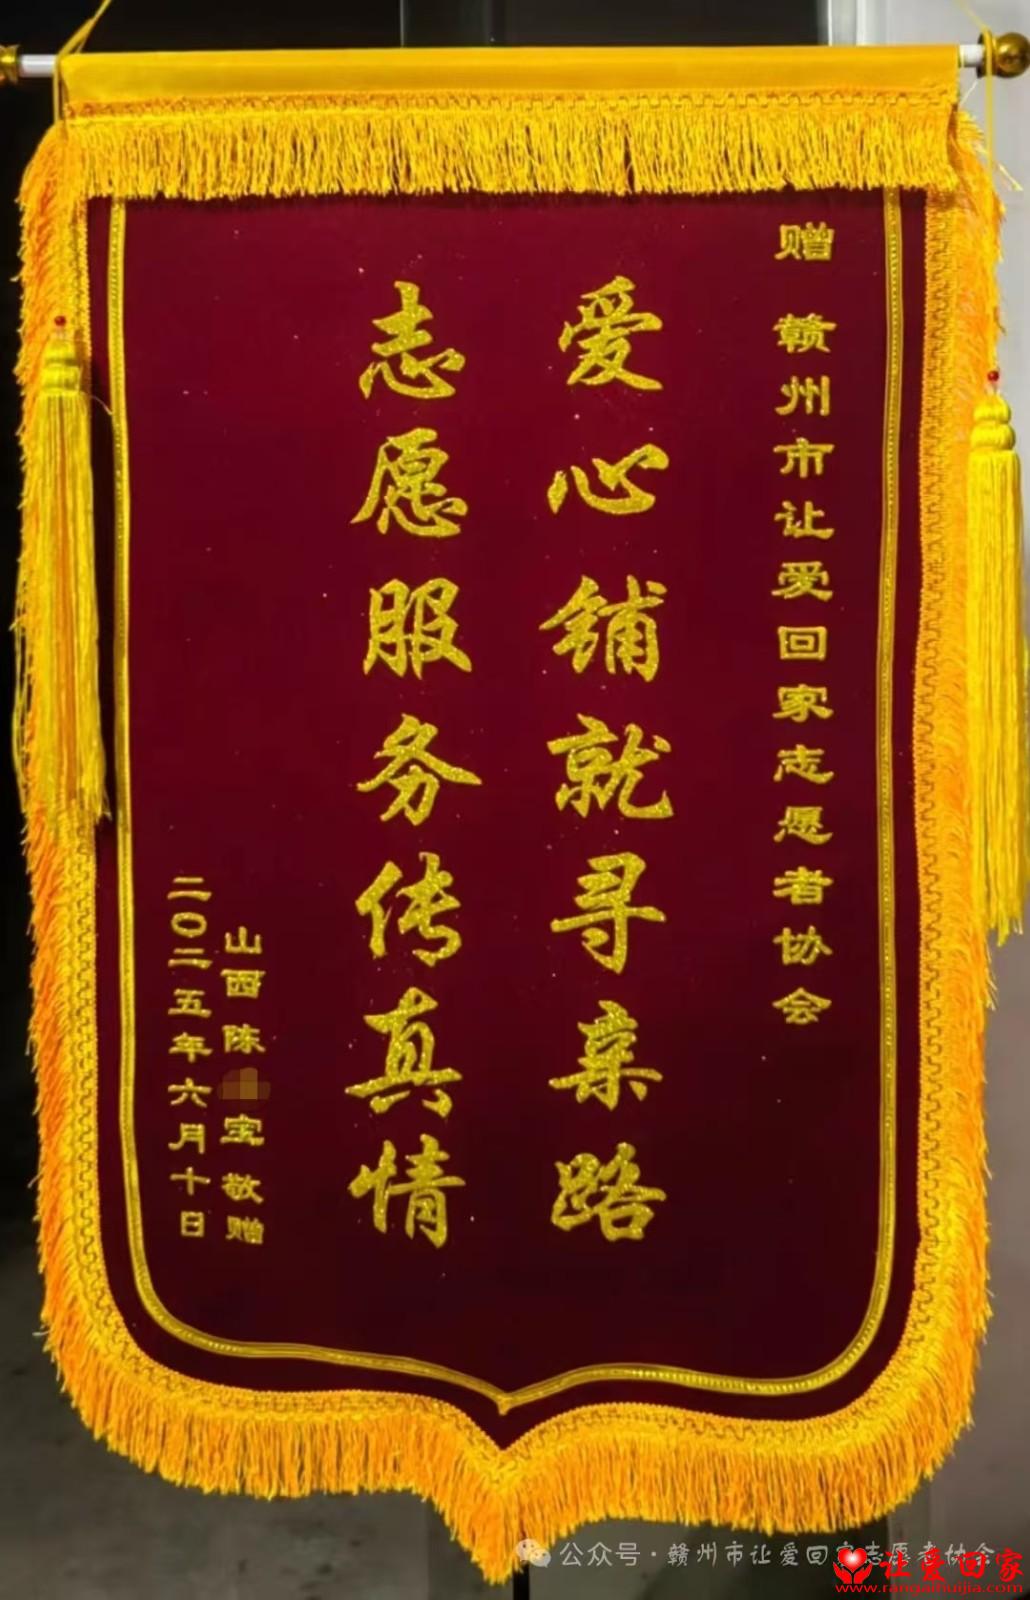 赠 赣州市让爱回家志愿者协会
爱心铺就寻亲路
志愿服务传真情
山西陈宝敬赠
二〇二五年六月十日
公众号·赣州市让爱回家志愿者协会
让爱回家
www.rangaihuijia.com